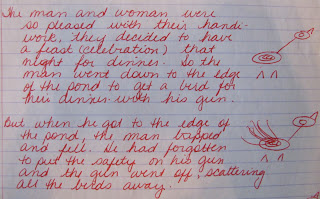 The man and woman were
so pleased with their handi-
work, they decided to have
a feast (celebration) that
night for dinner. So the
man went down to the edge
of the pond to get a bird for
their dinner with his gun.
But when he got to the edge of
the pond, the man tripped
and fell. He had forgotten
to put the safety on his gun
and the gun went off, scattering
all the birds away.